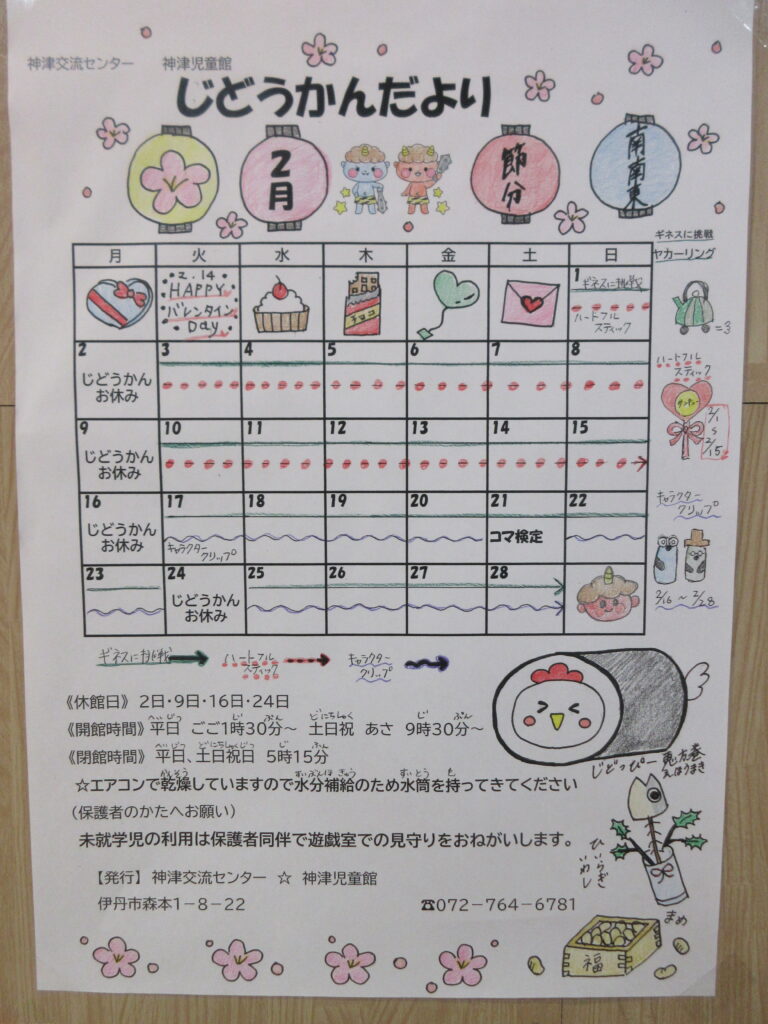 神津交流センター 神津児童館
じどうかんだより
2月
節分
南南東
ギネスに挑戦
ヤカーリング
月 火 水 木 金 土 日
2.14
HAPPY
バレンタイン
Day
チョコ
1
ギネスに挑戦
ハートフル
スティック
2 3 4 5 6 7 8
じどうかん
お休み
ハートフル
スティック
サンキュー
2/1
2/15
9 10 11 12 13 14 15
じどうかん
お休み
16 17 18 19 20 21 22
じどうかん
お休み
キャラクター
クリップ
コマ検定
キャラクター
クリップ
2/16~2/28
23 24 25 26 27 28
じどうかん
お休み
ギネスに挑戦
ハートフル
スティック
キャラクター
クリップ
《休館日》 2日・9日・16日・24日
《開館時間》 平日 ごご1時30分~ 土日祝 あさ 9時30分~
《閉館時間》 平日、土日祝日 5時15分
☆エアコンで乾燥していますので水分補給のため水筒を持ってきてください
(保護者のかたへお願い)
未就学児の利用は保護者同伴で遊戯室での見守りをおねがいします。
じどっぴー 恵方巻
えほうまき
ひいらぎ
いわし
【発行】 神津交流センター ☆ 神津児童館
伊丹市森本1-8-22 ☎072-764-6781
まめ
福